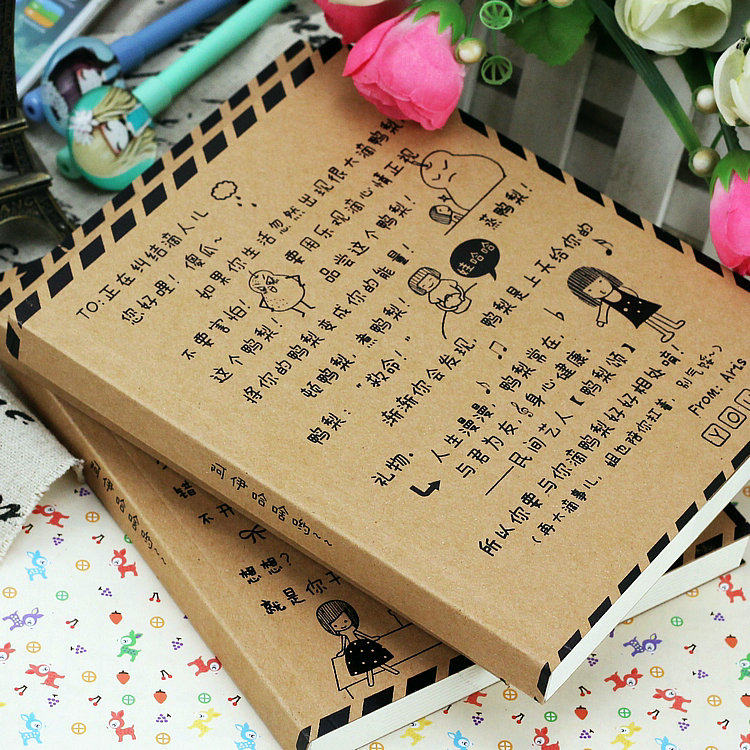 TO:正在纠结滴人儿
您好哩! 傻瓜~
如果你生活忽然出现很大滴鸭梨
不要害怕! 要用乐观滴心情正视
这个鸭梨! 品尝这个鸭梨!
将你的鸭梨变成你的能量! 蒸鸭梨!
顿鸭梨,煮鸭梨!
娃哈哈
鸭梨: “救命!”
渐渐你会发现, 鸭梨是上天给你的
礼物。
人生漫漫, 鸭梨常在.
与君为友, 身心健康.
——民间艺人【鸭梨颂】
所以你要与你滴鸭梨好好相处唷!
(再大滴事儿, 姐也陪你扛着, 别气馁~)
From: Aris
YO
阿弥哈哈哈呜~~
错
不开
想想?
就是你
ANG